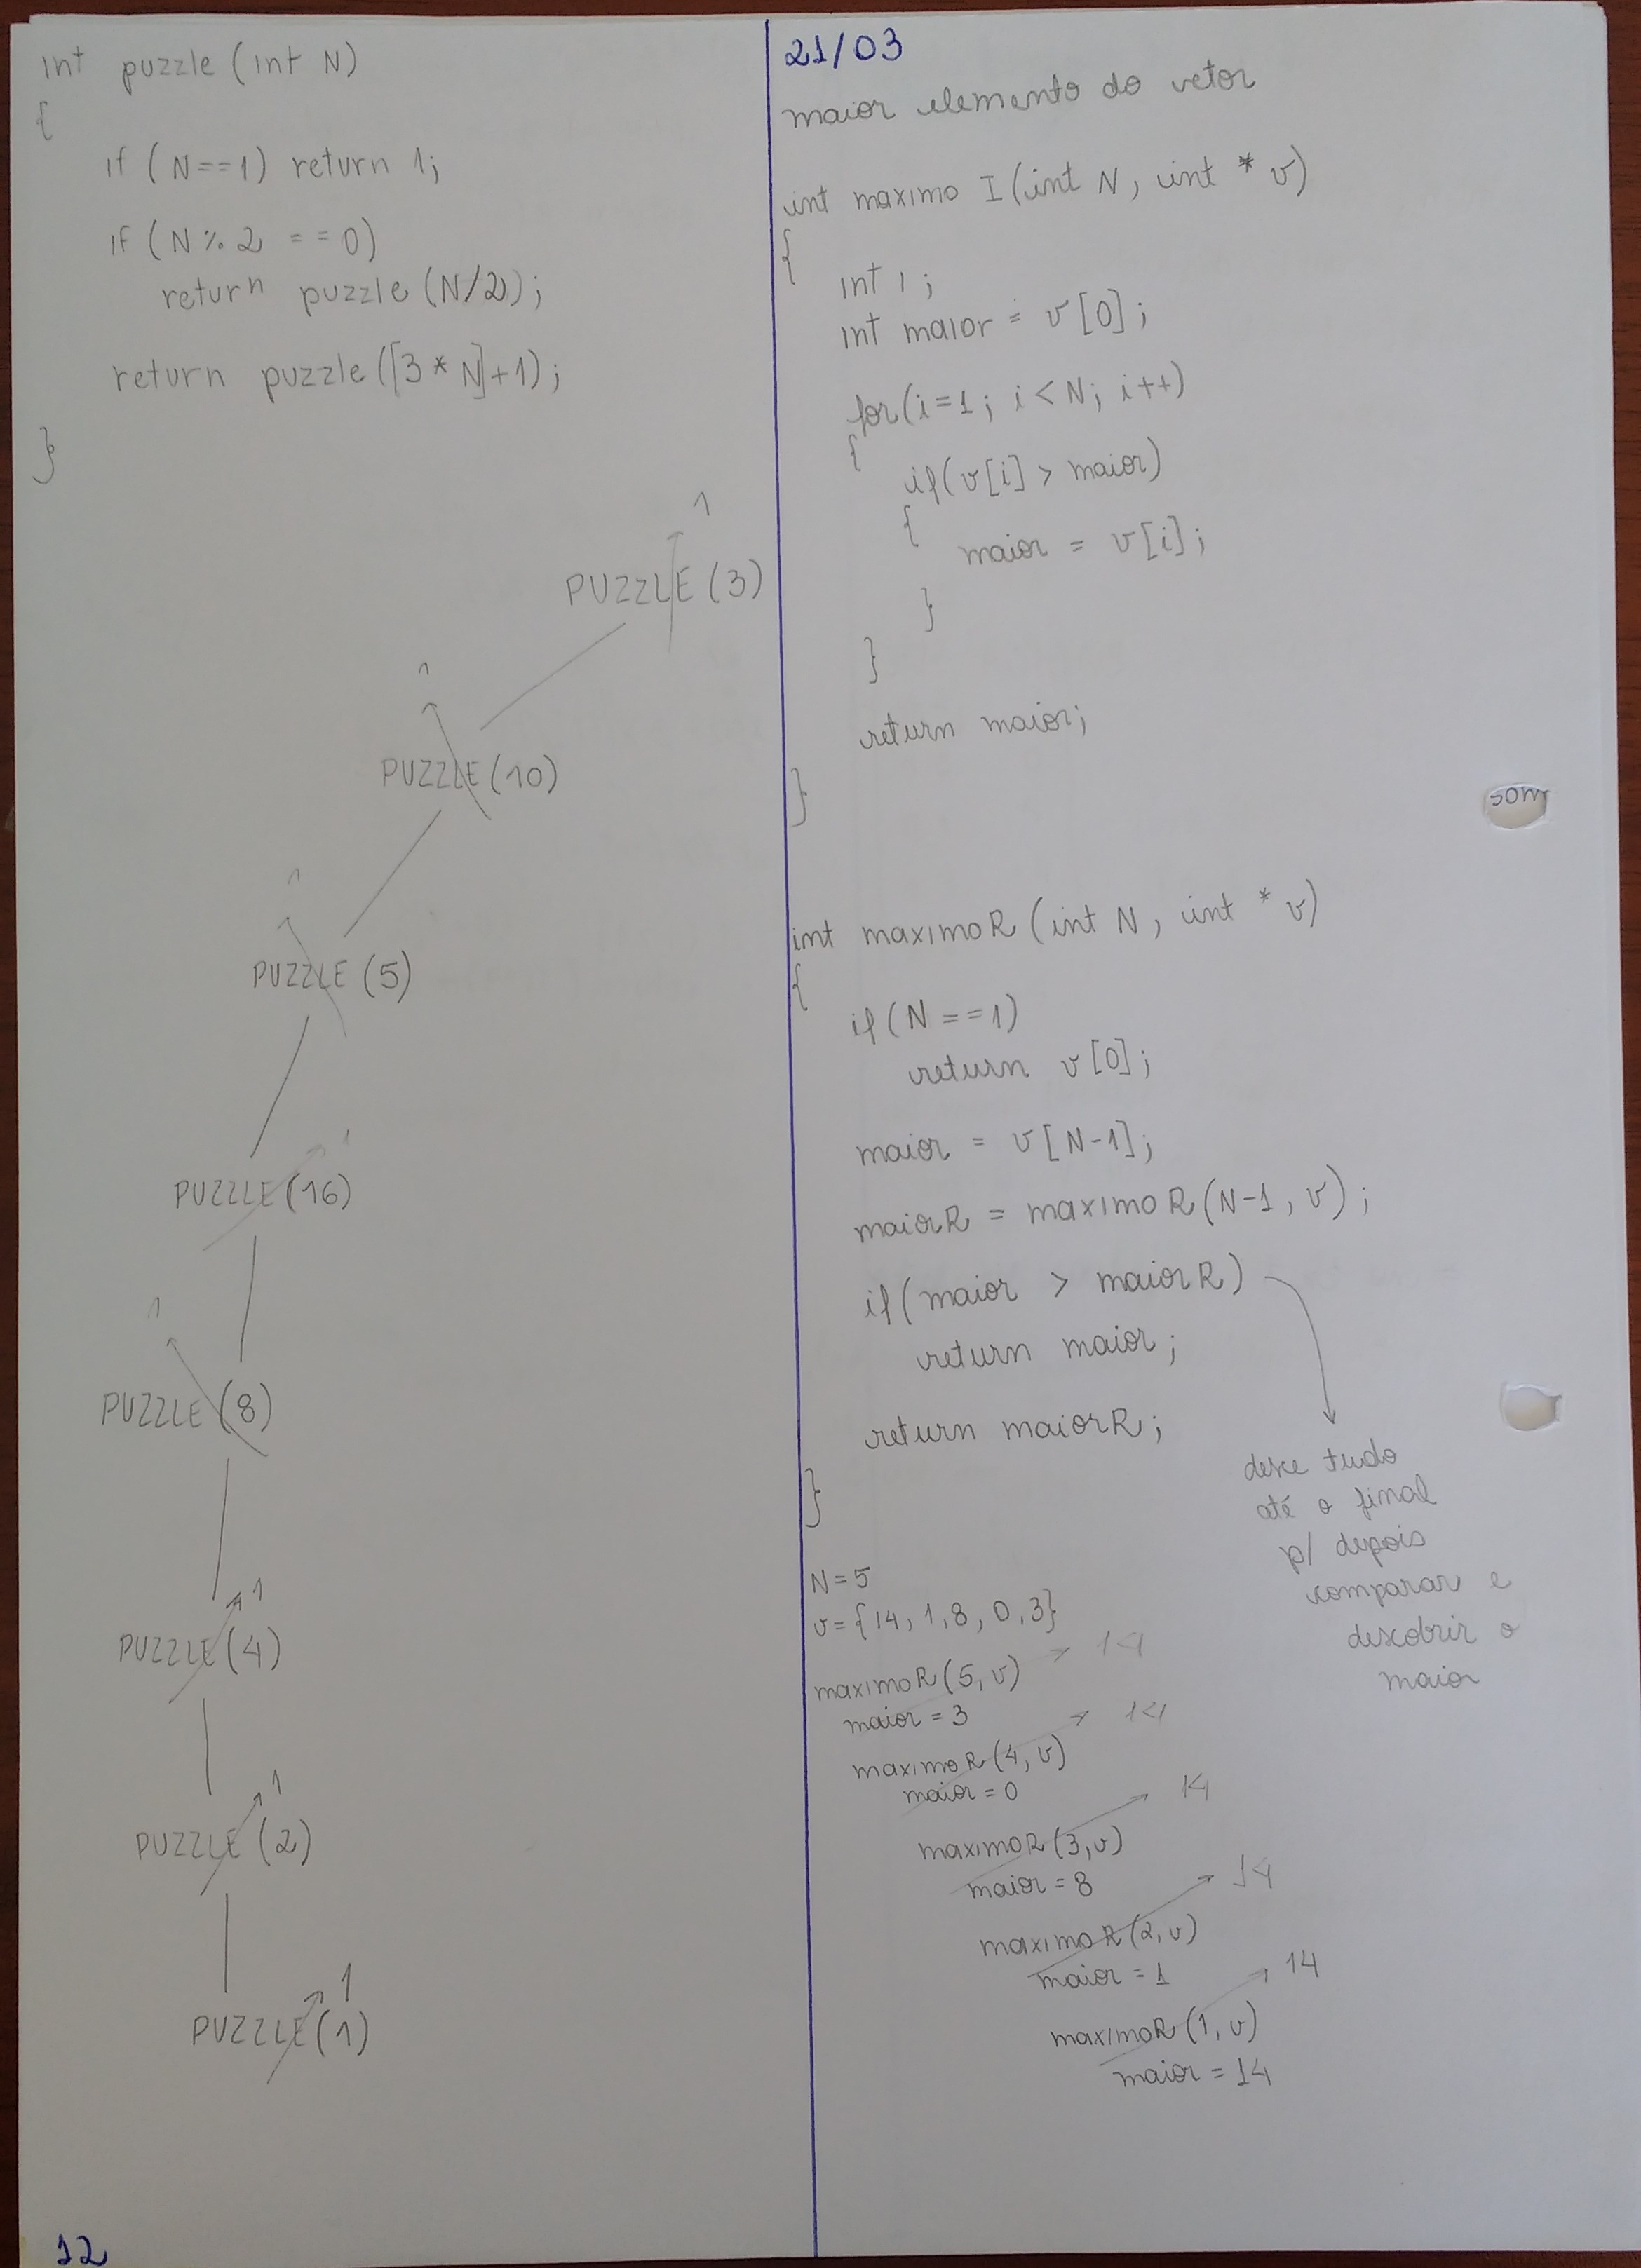 int puzzle (int N)
{
if (N==1) return 1;
if (N % 2 == 0)
return puzzle (N/2);
return puzzle ([3 * N]+1);
}
1
PUZZLE (3)
1
PUZZLE (10)
1
PUZZLE (5)
1
PUZZLE (16)
1
PUZZLE (8)
1
PUZZLE (4)
1
PUZZLE (2)
1
PUZZLE (1)
12
21/03
maior elemento do vetor
int maximo I (int N, int * v)
{
int i;
int maior = v[0];
for(i=1; i<N; i++)
{
if(v[i] > maior)
{
maior = v[i];
}
}
return maior;
}
som
int maximoR (int N, int * v)
{
if (N == 1)
return v[0];
maior = v[N-1];
maiorR = maximoR (N-1, v);
if (maior > maiorR)
return maior;
return maiorR;
}
desce tudo
até o final
p/ depois
comparar e
descobrir o
maior
N=5
v={14, 1, 8, 0, 3}
maximoR (5, v) 14
maior = 3
maximoR (4, v) 14
maior = 0
maximoR (3, v) 14
maior = 8
maximoR (2, v) 14
maior = 1
maximoR (1, v) 14
maior = 14